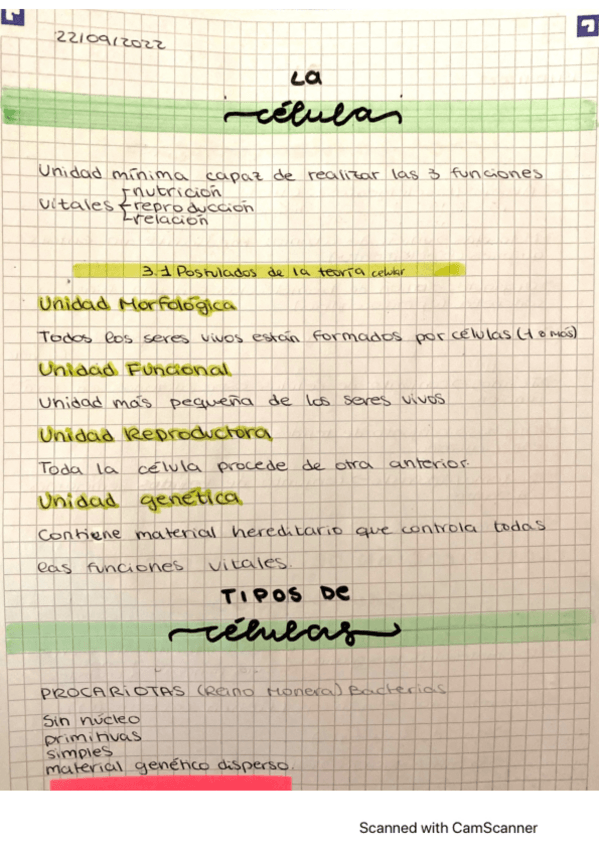 22/09/2022
La
célula
Unidad mínima capaz de realizar las 3 funciones
nutrición
vitales reproducción
relación
3.1 Postulados de la teoría celular
Unidad Morfológica
Todos los seres vivos están formados por células (1 o más)
Unidad Funcional
Unidad más pequeña de los seres vivos
Unidad Reproductora
Toda la célula procede de otra anterior.
Unidad genética
Contiene material hereditario que controla todas
las funciones vitales.
TIPOS DE
células
PROCARIOTAS (Reino Monera) Bacterias
Sin núcleo
primitivas
simples
material genético disperso.
Scanned with CamScanner